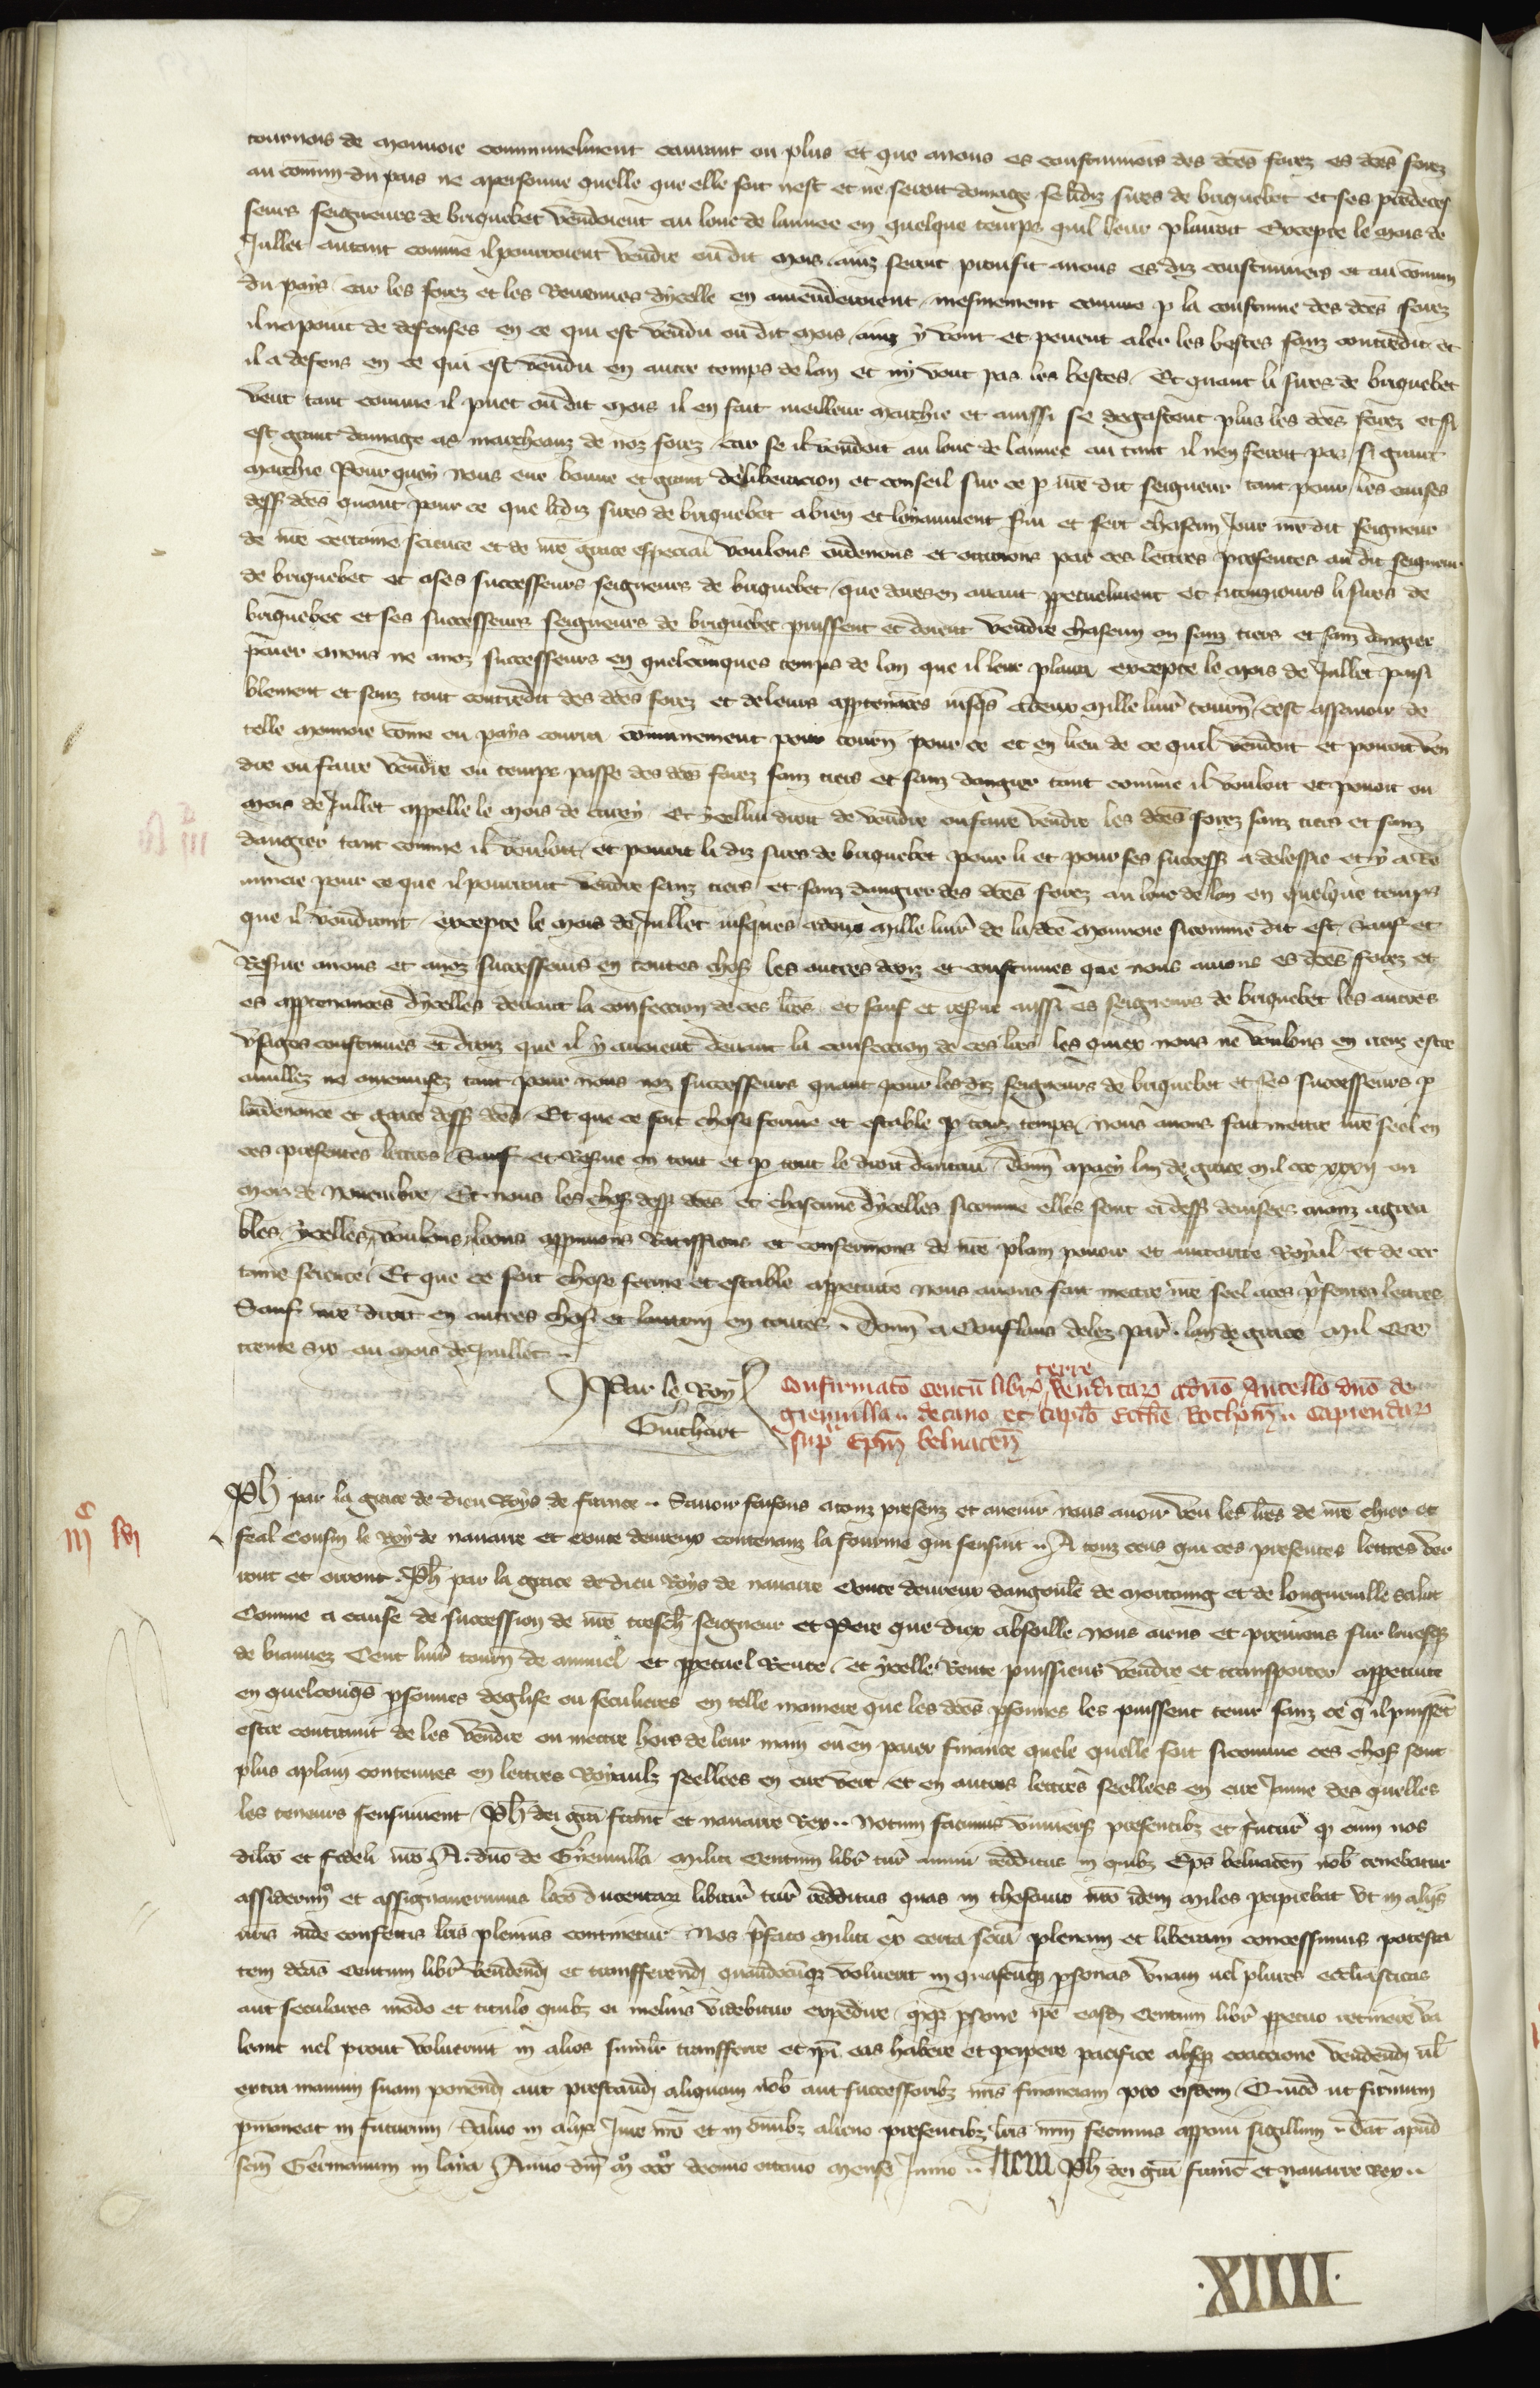 tournois de monnoie communelment courant ou plus et que anous es coustumiers des dces forez es dces forez
au comun du pais ne apersonne quelle que elle soit nest et ne seroit domage se lidiz sires de briquebet et ses predeces
seurs seigneurs de briquebet vendoient au lonc de lannee en quelque temps quil leur plairoit Excepte le mois de
Juillet autant comme il pourroient vendre ou dit mois ainz seroit proufit anous es diz coustumiers et au comun
du pays car les forez et les Revenues dycelle en amenderoient mesmement comme p la coustume des dces forez
il na point de defenses en ce qui est vendu ou dit mois ainz y vont et peuent aler les bestes sanz contredit et
il a defens en ce qui est vendu en autre temps de lan et ny vont pas les bestes Et quant li sires de briquebet
vent tant comme il puet ou dit mois il en fait meilleur marchie et aussi se degastent plus les dces forez et si
est grant domage as marcheanz de noz forez car se il vendoit au lonc de lannee au tant il nen feroit pas si grant
marchie Pour quoy nous eue bonne et grant deliberacion et conseil sur ce p nre dit seigneur tant pour les causes
dess dces quant pour ce que lidiz sires de briquebet a bien et loyaument servi et sert chascun Jour nre dit seigneur
de nre certaine science et de nre grace especial voulons ordenons et ottroions par ces lettres presentes au dit seigneur
de briquebet et a ses successeurs seigneurs de briquebet que dores en avant ppetuelment et atouziours li sires de
briquebec et ses successeurs seigneurs de briquebec puissent et doient vendre chascun an sanz tiers et sanz dangier
paier anous ne anoz successeurs en quelconques temps de lan que il leur plaira excepte le mois de Juillet paisi
blement et sanz tout contredit des dces forez et de leurs apptenances iusqs a deux mille livr tourn cest assavoir de
telle monnoie come ou pays courra communement pour tourn pour ce et en lieu de ce quil vendoit et povoit ven
dre ou faire vendre ou temps passe des dces forez sanz tiers et sanz dangier tant comme il vouloit et povoit ou
mois de Juillet appelle le mois de Et ycellui droit de vendre ou faire vendre les dces forez sanz tiers et sanz
dangier tant comme il vouloit et povoit li diz sires de briquebet pour li et pour ses success a delessie et y a re
nuncie pour ce que il pourront vendre sanz tiers et sanz dangier des dces forez au lonc de lan en quelque temps
que il voudront excepte le mois de Juillet iusques a deux mille livr de la dce monnoie sicomme dit est Sauf et
Reserve anous et anoz successeurs en toutes choses les autres droiz et coustumes que nous avions es dces forez et
es apptenances dycelles devant la confeccion de ces lres et sauf et reserve aussi es seigneurs de briquebet les autres
usages coustumes et droiz que il y avoient devant la confeccion de ces lres les quiex nous ne voulons en riens estre
amenusez tant pour nous noz successeurs quant pour les diz seigneurs de briquebet et ses successeurs p
lordenance et grace dess dces Et que ce soit chose ferme et estable p touz temps nous avons fait mettre nre seel en
ces presentes lettres Sauf et Reserve en tout et p tout le droit dautrui Donn lan de grace mil ccc xxxij ou
mois de Novembre Et nous les choses dess dces et chascune dycelles sicomme elles sont ci dess devisees aianz agrea
bles ycelles voulons loons approuvons Ratiffions et confermons de nre plain povoir et auctorite Royal et de cer
taine science Et que ce soit chose ferme et estable appetuite nous avons fait mettre nre seel a ces presentes lettres
Sauf nre droit en autres choses et lautrui en toutes Donn a Conflans delez Par lan de grace Mil CCC
trente Six ou mois de Juillet
Par le Roy
Guichart
Confirmato Centu libr terre venditar a dno Ancello dno de
decano et capitlo Ecclie Rothom Capiendar
sup Epm belvacen
Ph par la grace de dieu Roys de france Savoir faisons atouz presenz et avenir nous avoir veu les lres de nre chier et
feal Cousin le Roy de navarre et conte devreux contenanz la fourme qui sensuit A touz ceus qui ces presentes lettres ver
ront et orront Ph par la grace de dieu Roys de navarre Conte devreux dangoule de mortaing et de longueville salut
Comme a cause de succession de nre tresch seigneur et Pere que diex absoille nous aiens et preniens sur levesq
de biauvez Cent livr tourn de annuel et ppetuel Rente et ycelle Rente puissiens vendre et transporter appetuite
en quelconqs psonnes deglise ou seculieres en telle maniere que les dces psonnes les puissent tenir sanz ce q il puissent
estre contraint de les vendre ou mettre hors de leur main ou en paier finance quele quelle soit sicomme ces choses sont
plus aplain contenues en lettres Royaulz seellees en cire vert et en autres lettres seellees en cire Jaune des quelles
les teneurs sensuivent Ph dei gra franc et navarre Rex Notum facimus Univers presentibz et futur q cum nos
dilco et fideli nro A dno de militi Centum libr tur annui redditus in quibz Eps belvacen nob tenebatur
assiderimus et assignaverimus loco Ducentar librar tur redditus quas in thesauro nro idem miles pcipiebat ut in alijs
nris inde confectis lris plenius continetur Nos pfato militi ex certa scia plenam et liberam concessimus potesta
tem dcas Centum libr vendend et transferend quandocumqz voluerit in quascumqz psonas unam vel plures ecclesiasticas
aut seculares modo et titulo quibz ei melius videbitur expedire qdqz psone ipe easd Centum libr ppetuo retinere va
leant vel prout voluerint in alios similr transferre et ipi eas habere et pcipere pacifice absqz coactione vendend vl
extra manum suam ponend aut prestand aliquam nob aut successoribz nris financiam pro eisdem Quod ut firmum
pmaneat in futurum Salvo in alijs Jure nro et in omibz alieno presentibz lris nrm fecimus apponi sigillum Dat apud
scm Germanum in laya Anno dni m ccc decimo octavo mense Junio Item Ph dei gra franc et Navarre Rex
XIIII